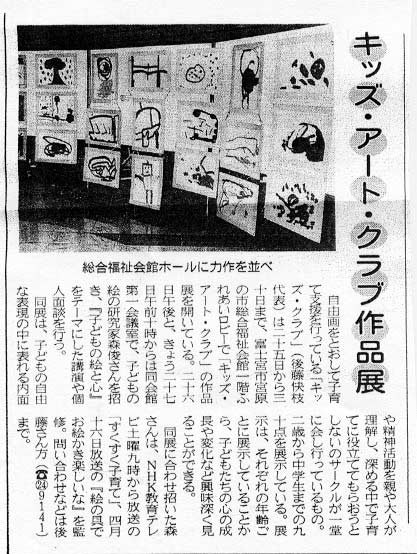 キッズ・アート・クラブ作品展
総合福祉会館ホールに力作を並べ
自由画をとおして子育
て支援を行っている「キッ
ズ・クラブ」(後藤快枝
代表)は二十五日から三
十日まで、富士宮市宮原
の市総合福祉会館一階ふ
れあいロビーで「キッズ・
アート・クラブ」の作品
展を開いている。二十六
日午後と、きょう二十七
日午前十時からは同会館
第一会議室で、子どもの
絵の研究家森俊さんを招
き、『子どもの絵と心』
をテーマにした講演や個
人面談を行う。
同展は、子どもの自由
な表現の中に表れる内面
や精神活動を親や大人が
理解し、深める中で子育
てに役立ててもらおうと
しないのサークルが一堂
に会し行っているもの。
一歳から中学生までの九
十点を展示している。展
示は、それぞれの年齢ご
とに展示していることか
ら、子どもたちの心の成
長や変化など興味深く見
ることができる。
同展に合わせ招いた森
さんは、NHK教育テレ
ビ土曜九時から放送の
「すくすく子育て」、四月
十六日放送の『絵の具で
お絵かき楽しいな』を監
修。問い合わせなどは後
藤さん方(☎24-9-41)
まで。